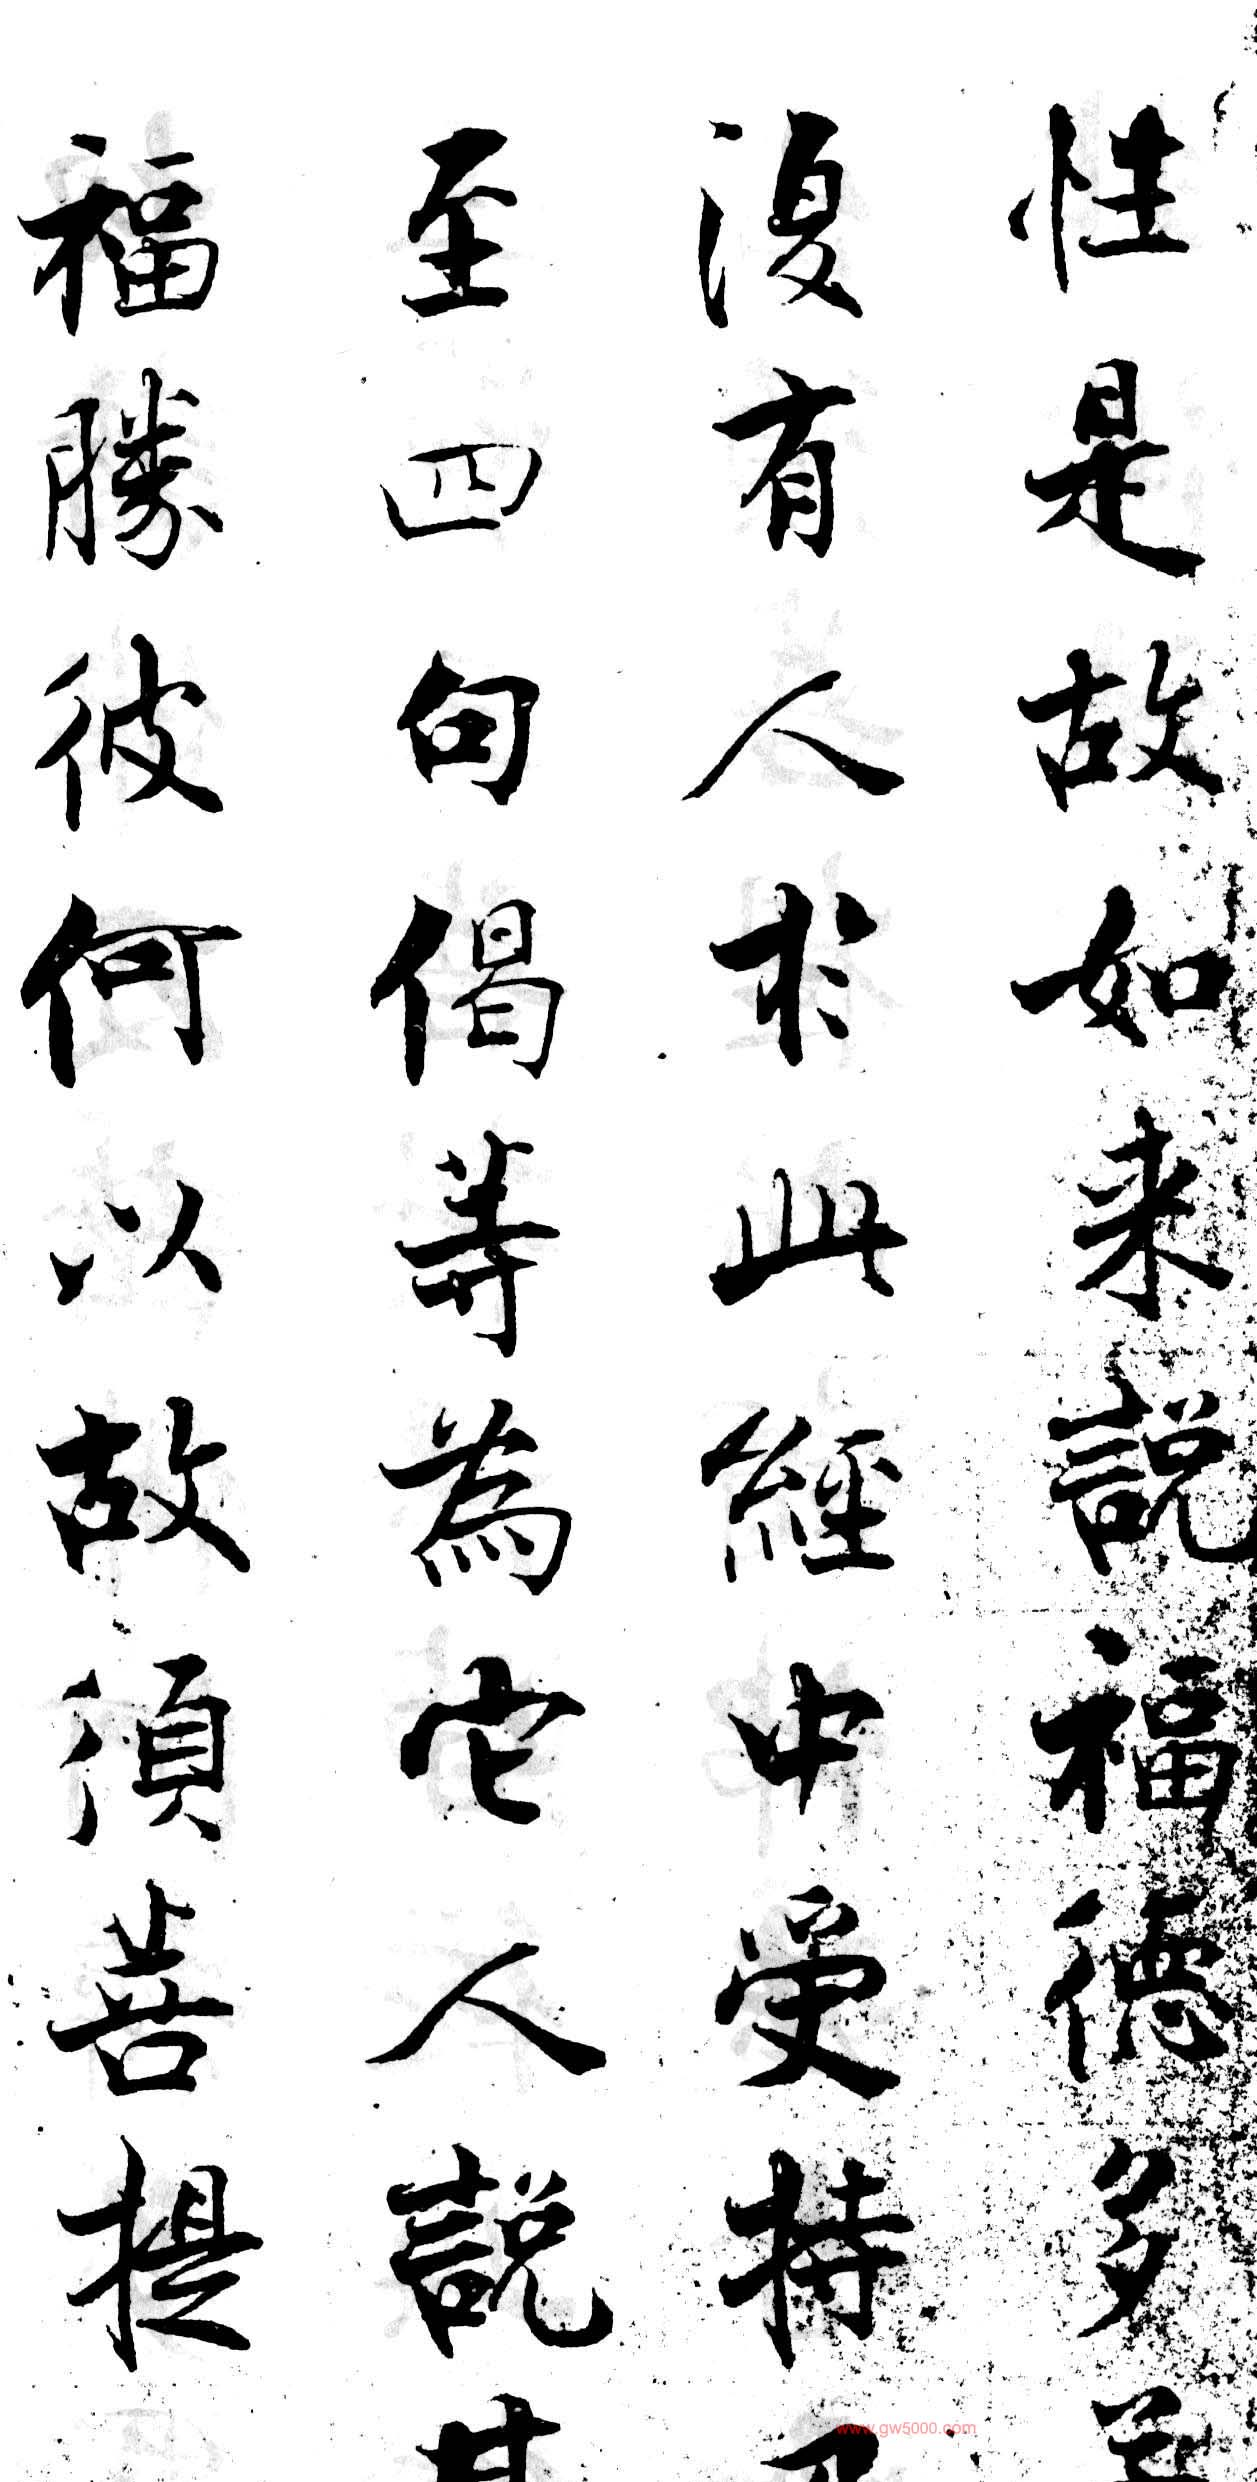 性是故如来説福德多
復有人於此經中受持
至四句偈等為它人説
福勝彼何以故須菩提
www.gw5000.com